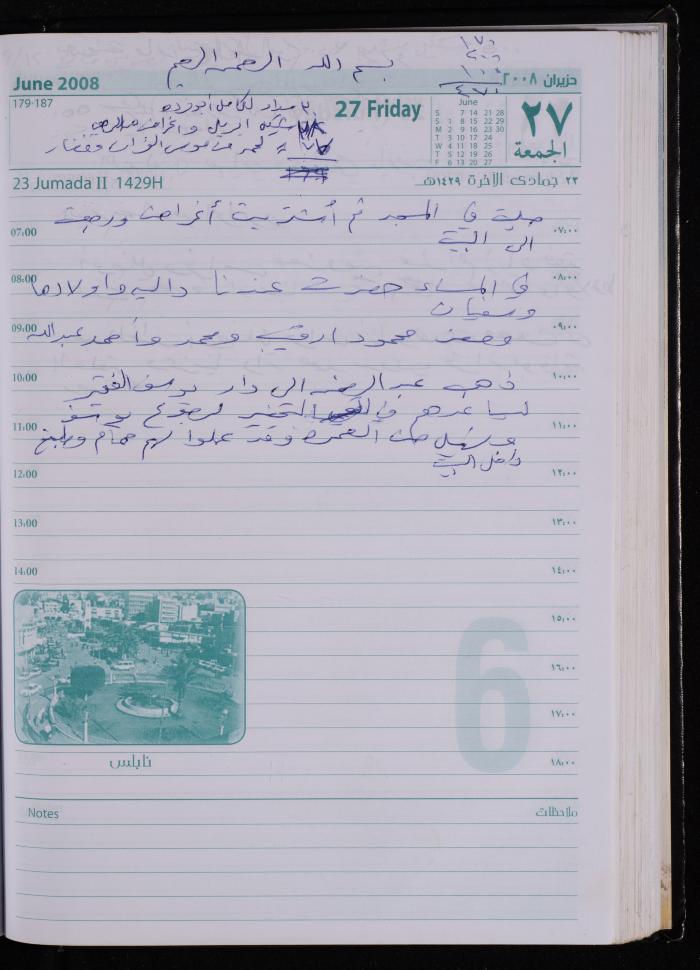 بسم الله الرحمن الرحيم
١٧٠
٢٠٠
١٠٠
٤٧٠
June 2008
حزيران ٢٠٠٨
179-187
27 Friday
٢٧
الجمعة
June
S 7 14 21 28
S 1 8 15 22 29
M 2 9 16 23 30
T 3 10 17 24
W 4 11 18 25
T 5 12 19 26
F 6 13 20 27
سداد لكامل أبو زده
وأغراض
23 Jumada II 1429H
٢٣ جمادى الآخرة ١٤٢٩هـ
صليت في المسجد ثم اشتريت أغراض ورجعت
07:00 ٠٧:٠٠
الى البيت
08:00 ٠٨:٠٠
في المساء حضرت عندنا داليه وأولادها
وسفيان
09:00 ٠٩:٠٠
وحضر محمود ومحمد وأحمد عبدالله
10:00 ١٠:٠٠
ذهب عبد الرحمن الى دار يوسف الفقير
ليساعدهم في التحضير لرجوع يوسف
11:00 ١١:٠٠
من العمره وقد عملوا لهم حمام ومطبخ
داخل البيت
12:00 ١٢:٠٠
13:00 ١٣:٠٠
14:00 ١٤:٠٠
١٥:٠٠
١٦:٠٠
١٧:٠٠
١٨:٠٠
6
نابلس
Notes
ملاحظات